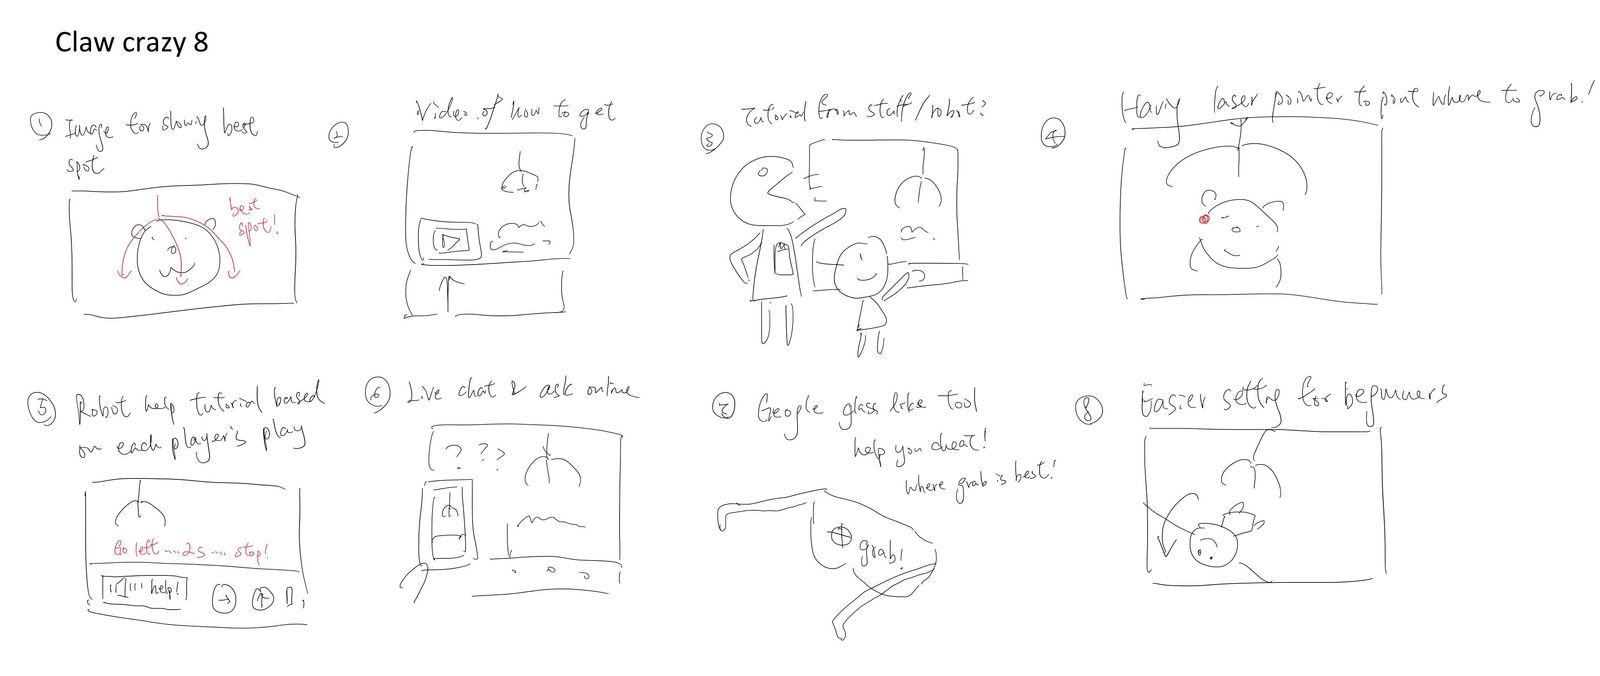 Claw crazy 8
① Image for showing best
spot
best
spot!
② Video of how to get
③ Tutorial from staff/robot?
④ Having laser pointer to point where to grab!
⑤ Robot help tutorial based
on each player's play
Go left ....2s .... stop!
help!
⑥ Live chat & ask online
? ? ?
⑦ Google glass like tool
help you cheat!
where grab is best!
grab!
⑧ Easier setting for beginners